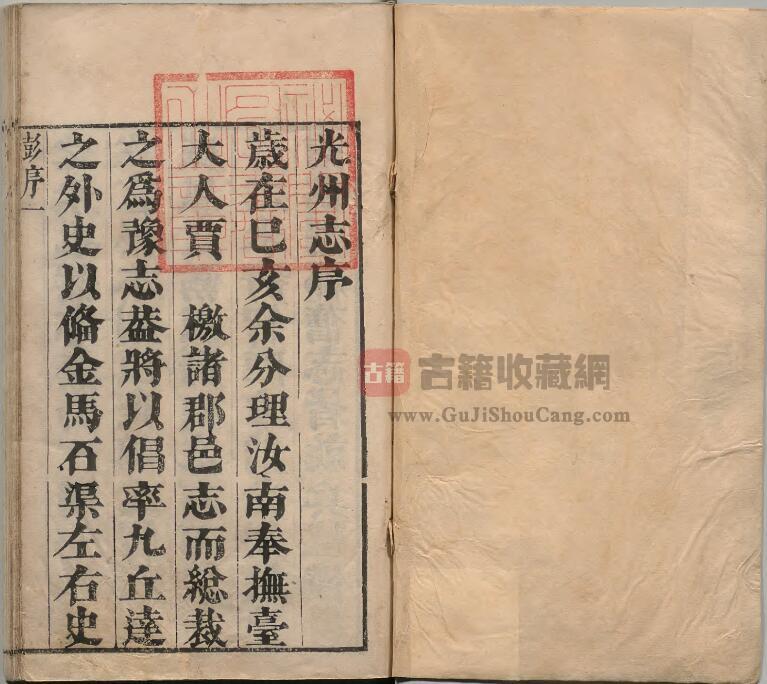 光州志序
歲在巳亥余分理汝南奉撫臺
大人賈 檄諸郡邑志而總裁
之爲豫志葢將以倡率九丘達
之外史以俻金馬石渠左右史
彭序一
古籍
古籍收藏網
www.GuJiShouCang.com